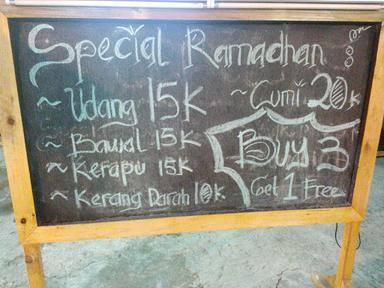 Special Ramadhan
~ Udang 15K
~ Cumi 20K
~ Bawal 15K
~ Kerapu 15K
~ Kerang Darah 10k.
Buy 3
Get 1 Free